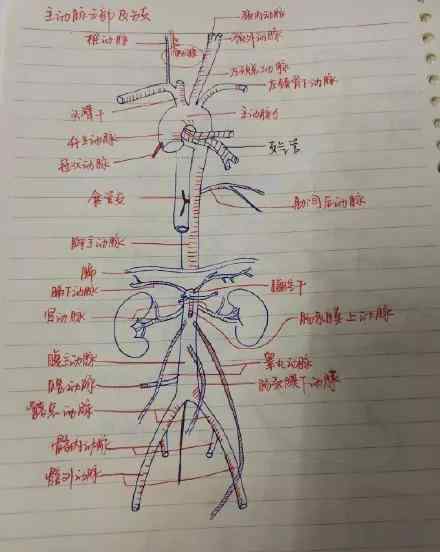 主动脉分部及分支
颈内动脉
颈外动脉
椎动脉
左锁骨下动脉
头臂干
主动脉弓
升主动脉
支气管
冠状动脉
食管支
肋间后动脉
胸主动脉
膈
膈下动脉
腹腔干
肾动脉
肠系膜上动脉
腹主动脉
睾丸动脉
腰动脉
肠系膜下动脉
髂总动脉
髂内动脉
髂外动脉